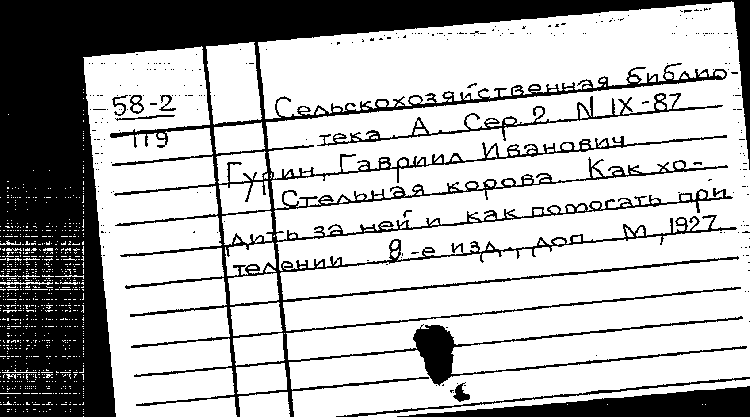 58-2
119
Сельскохозяйственная библио-
тека. А. Сер. 2 N IX-87
Гурин, Гавриил Иванович
Стельная корова. Как хо-
дить за ней и как помогать при
телении 9-е изд., доп. М, 1927.